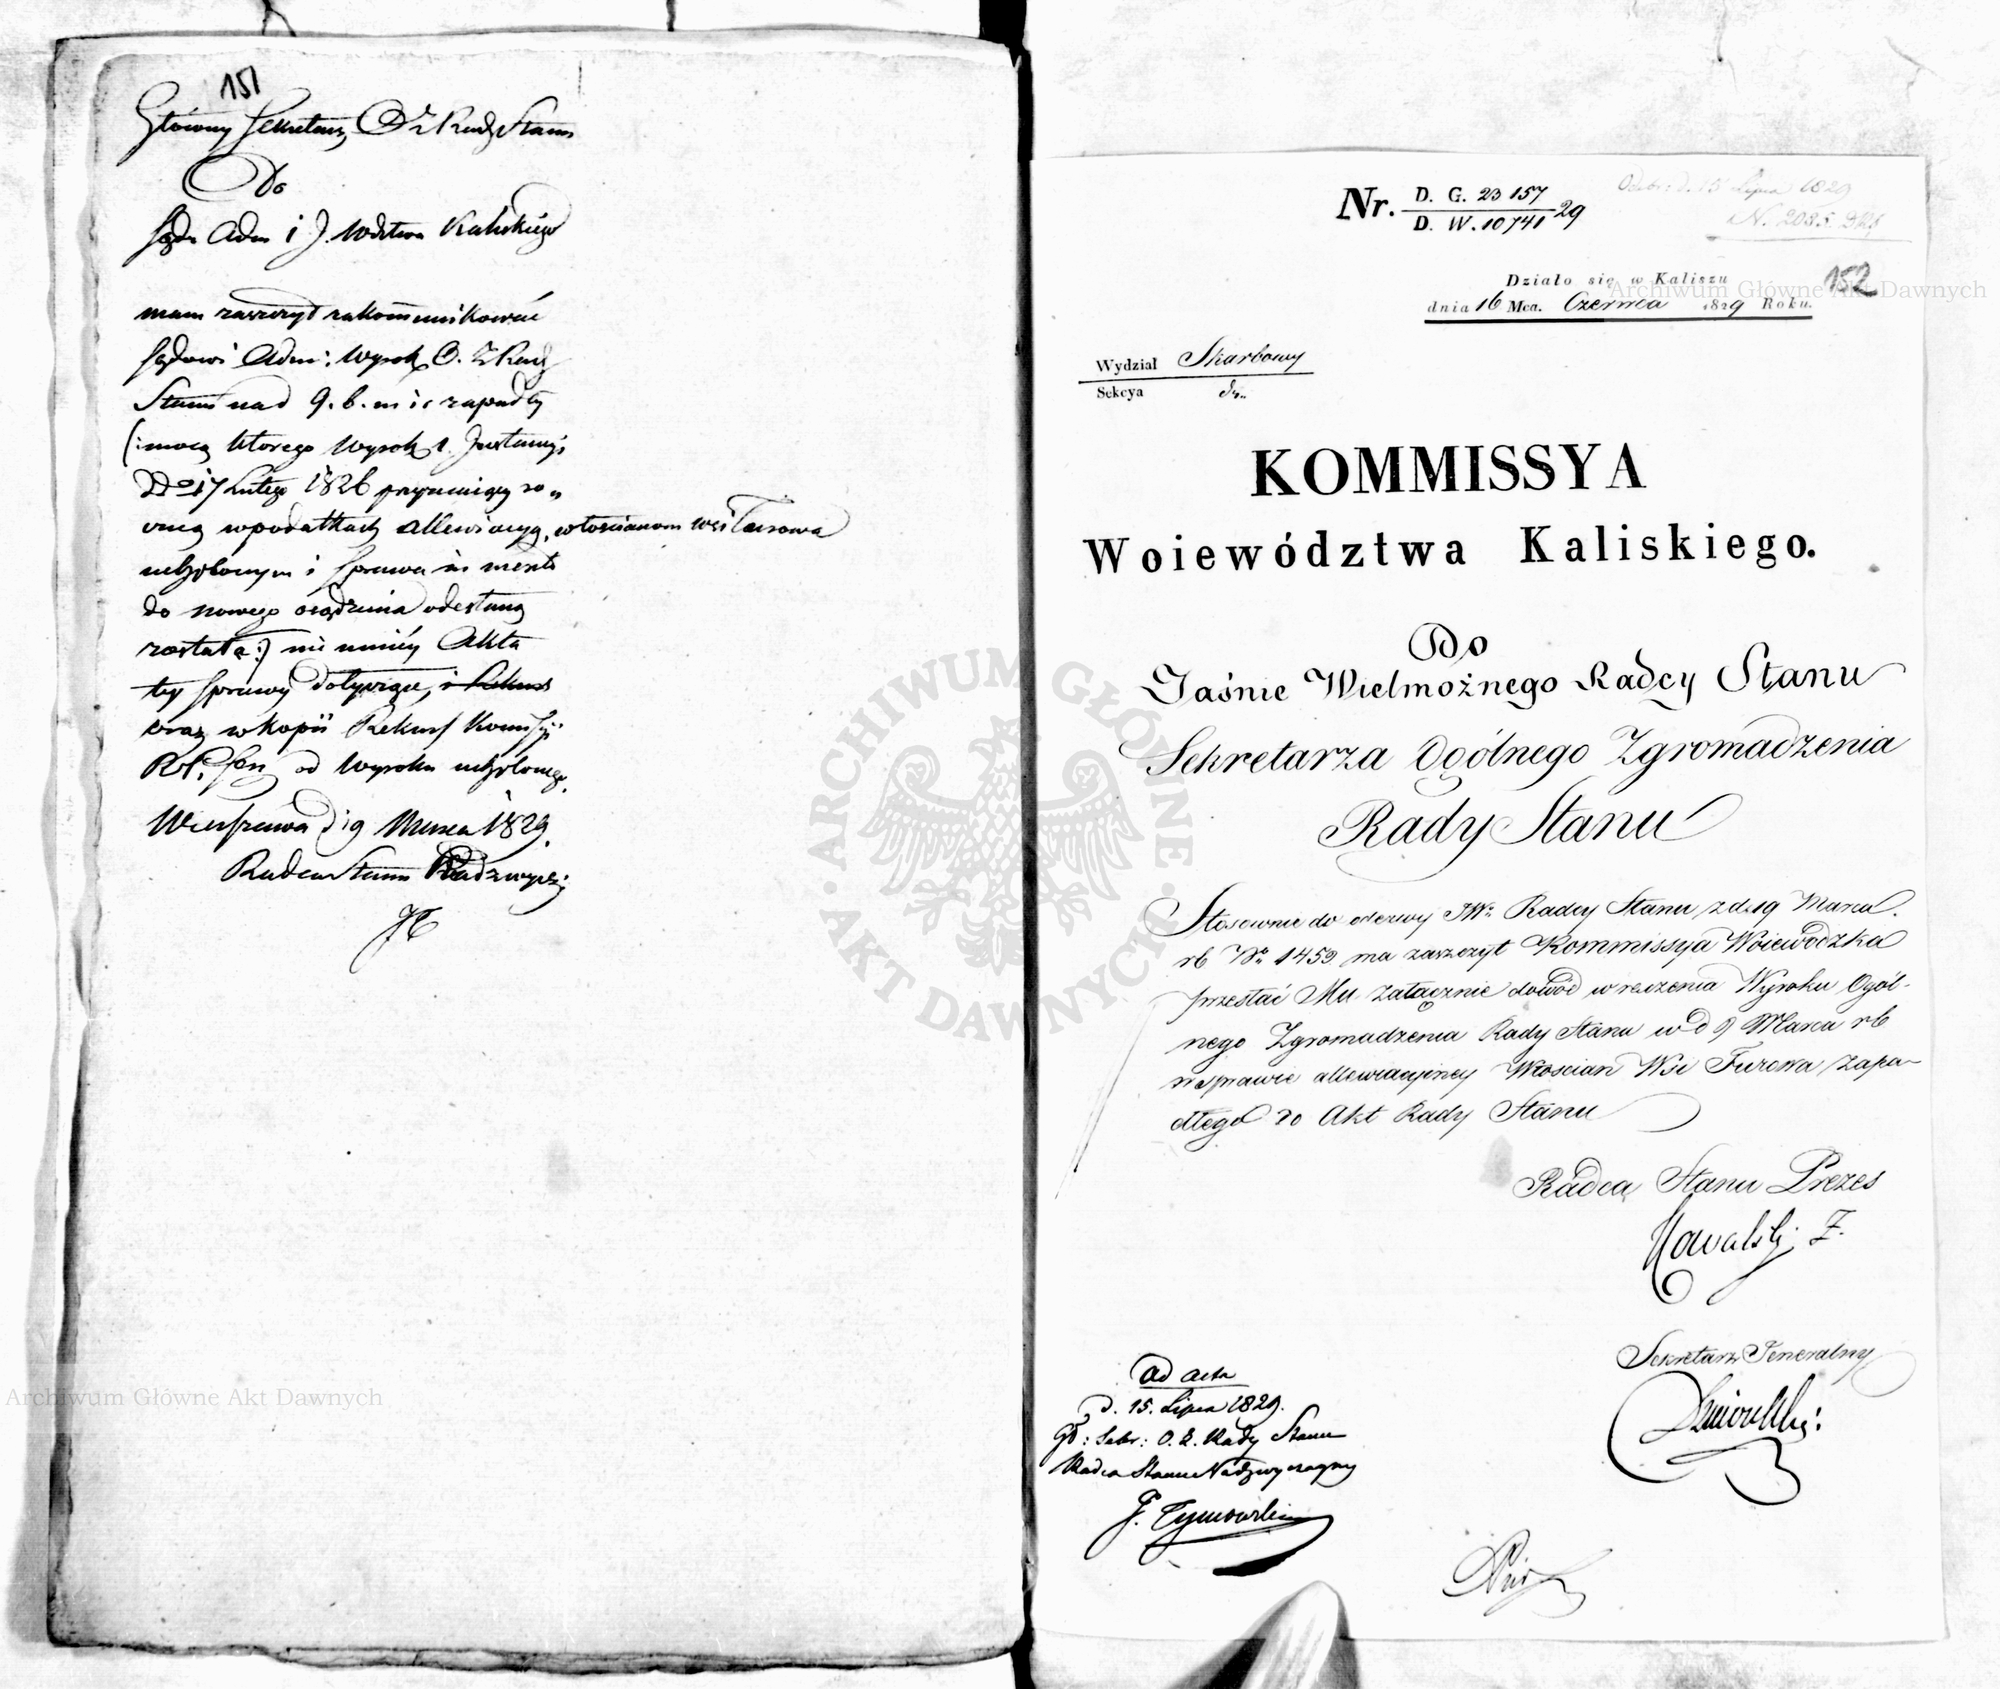 151
Główny Sekretarz O Z Rady Stanu
Do
Sądu Adm i J. Wdztwa Kaliskiego
mam zaszczyt zakommunikować
Sądowi Adm: Wyrok O. Z Rady
Stanu nad 9. b. m i r zapadły
(: mocą którego Wyrok 1. Instancyi
17 Lutego 1826 przyznaiący
w podatkach allewiacyą, włościanom wsi Turowa
uchylonym i sprawa in merito
do nowego osądzenia odesłaną
została :) niemniéy Akta
tey sprawy dotyczące,
oraz w kopii Rekurs Komissyi
od Wyroku uchylonego.
Warszawa d 19 Marca 1829.
Radca Stanu Nadzwycz:
Nr. D. G. 23 157
D. W. 10741 29
Odebr: d. 15 Lipca 1829
N. 2085.
152
Działo się w Kaliszu
dnia 16 Mca. Czerwca 1829 Roku.
Wydział Skarbowy
Sekcya
KOMMISSYA
Woiewództwa Kaliskiego.
Do
Jaśnie Wielmożnego Radcy Stanu
Sekretarza Ogólnego Zgromadzenia
Rady Stanu
Stosownie do odezwy JW: Radcy Stanu z d. 19 Marca
rb Nr 1459 ma zaszczyt Kommissya Woiewódzka
przesłać Mu załącznie dowód wręczenia Wyroku Ogól-
nego Zgromadzenia Rady Stanu w d 9 Marca rb
w sprawie allewiacyiney Włoscian Wsi Turowa zapa-
dłego do Akt Rady Stanu
Radca Stanu Prezes
Sekretarz Jeneralny
ad acta
d. 15. Lipca 1829.
Gł: Sekr: O. Z. Rady Stanu
Radca Stanu Nadzwyczayny
J. Tymowski
Archiwum Główne Akt Dawnych
Archiwum Główne Akt Dawnych
· ARCHIWUM GŁÓWNE · AKT DAWNYCH